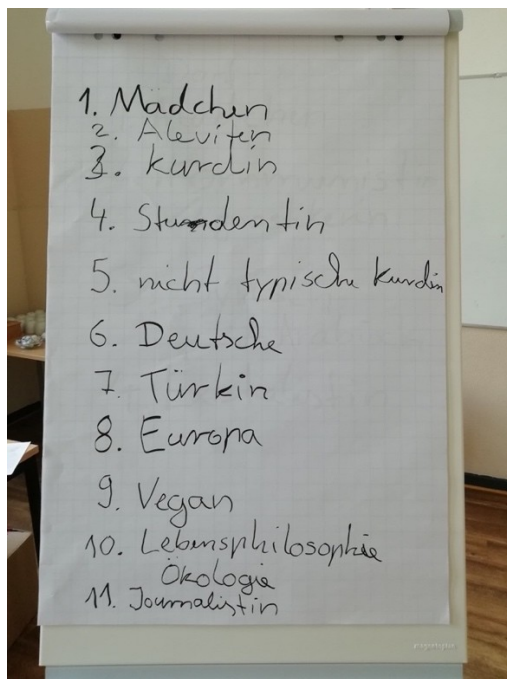 1. Mädchen
2. Aleviten
3. Kurdin
4. Studentin
5. nicht typische Kurdin
6. Deutsche
7. Türkin
8. Europa
9. Vegan
10. Lebensphilosophie
Ökologie
11. Journalistin